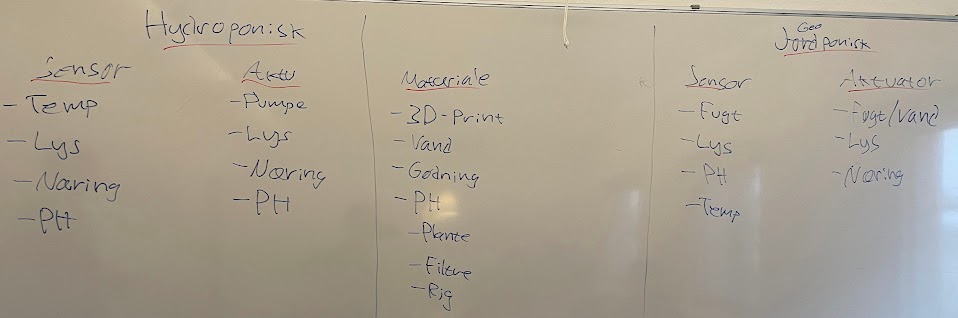 Hydroponisk
Sensor
- Temp
- Lys
- Næring
- PH
Aktu
- Pumpe
- Lys
- Næring
- PH
Materiale
- 3D-Print
- Vand
- Gødning
- PH
- Plante
- Filtre
- Rig
Geo
Jordponisk
Sensor
- Fugt
- Lys
- PH
- Temp
Aktuator
- Fugt/Vand
- Lys
- Næring